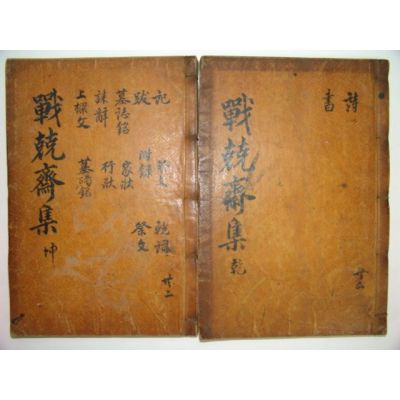 詩
書
戰兢齋集 乾
共二
記
跋 附錄 祭文
墓誌銘 家狀
誄辭 行狀
上樑文 墓碣銘
戰兢齋集 坤
共二